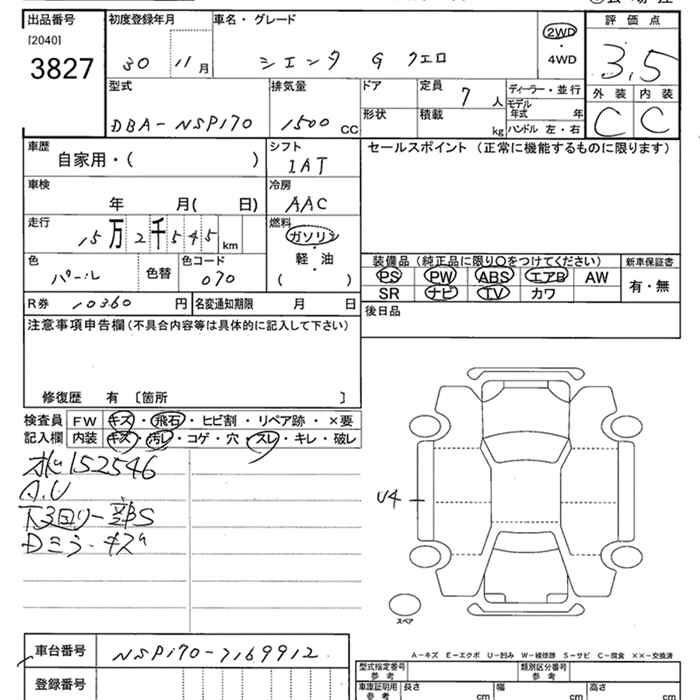 出品番号 初度登録年月 車名・グレード 2WD・4WD 評価点
[2040]
3827
30 11月 シエンタ G クエロ 3.5
型式 排気量 ドア 定員 7人 ディーラー・並行 外装 内装
DBA-NSP170 1500CC 形状 積載 kg モデル年式 年 C C
ハンドル 左・右
車歴 自家用・( ) シフト 1AT セールスポイント (正常に機能するものに限ります)
車検 年 月( 日) 冷房 AAC
走行 15万2千545km 燃料 ガソリン 軽・油 ( )
装備品(純正品に限り○をつけてください) 新車保証書
PS PW ABS エアB AW 有・無
SR ナビ TV カワ
色 パール 色替 色コード 070
R券 10360円 名変通知期限 月 日 後日品
注意事項申告欄(不具合内容等は具体的に記入して下さい)
修復歴 有 〔箇所 〕
検査員 FW キズ・飛石・ヒビ割・リペア跡・×要
記入欄 内装 キズ・汚レ・コゲ・穴・スレ・キレ・破レ
152546
A.U
下回リ一部S
Dミラーキズ
U4
スペア
A-キズ E-エクボ U-凹み W-補修跡 S-サビ C-腐食 ××-交換済
車台番号 NSP170-7169912
登録番号
型式指定番号 参考 類別区分番号 参考
車庫証明用 参考 長さ cm 幅 cm 高さ cm